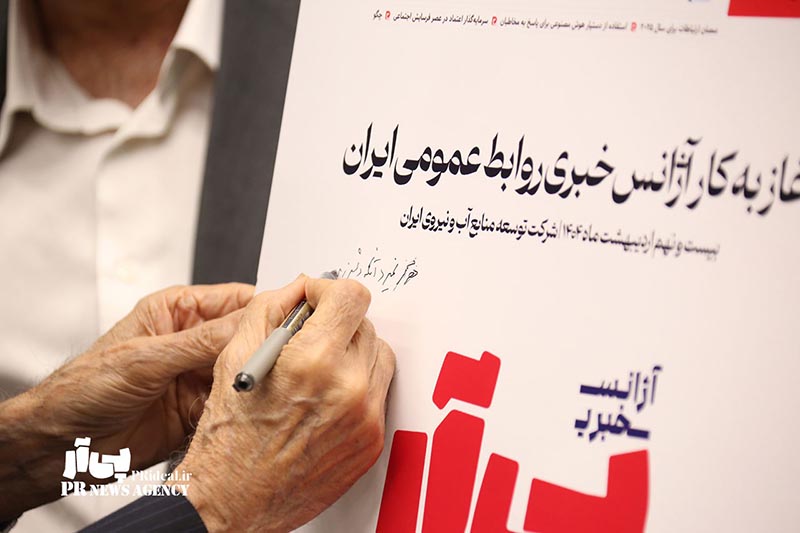 سرمایه‌گذار اعتماد در عصر فرسایش اجتماعی
استفاده از دستیار هوش مصنوعی برای پاسخ به مخاطبان
ارتباطات برای سال ۲۰۲۵
غاز به کار آژانس خبری روابط عمومی ایران
بیست و نهم اردیبهشت ماه ۱۴۰۴ / شرکت توسعه منابع آب و نیروی ایران
هرگز نمیرد آنکه دلش
آژانس
خبری
پی‌آر
پی‌آر
PRideal.ir
PR NEWS AGENCY